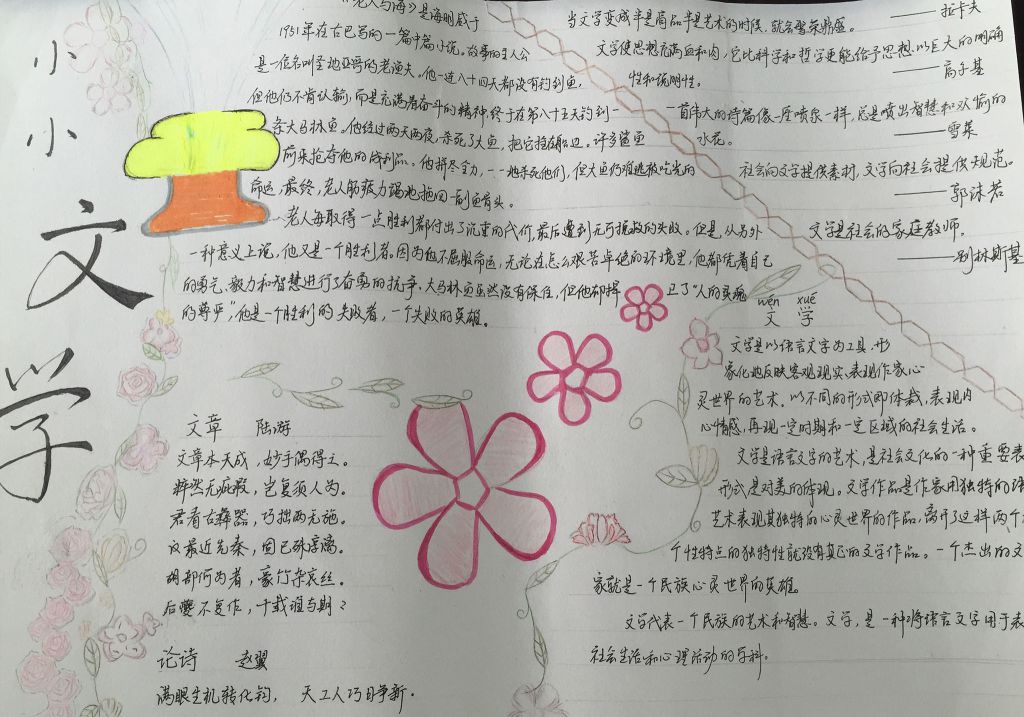 小小文学
《老人与海》是海明威于
1951年在古巴写的一篇中篇小说，故事的主人公
是一位名叫圣地亚哥的老渔夫。他一连八十四天都没有钓到鱼，
但他仍不肯认输，而是充满着奋斗的精神，终于在第八十五天钓到一
条大马林鱼。他经过两天两夜，杀死了大鱼，把它拴在船边。许多鲨鱼
前来抢夺他的战利品。他拼尽全力，一一地杀死他们，但大鱼仍难逃被吃光的
命运，最终，老人筋疲力竭地拖回一副鱼骨头。
老人每取得一点胜利都付出了沉重的代价，最后遭到无可挽救的失败。但是，从另外
一种意义上说，他又是一个胜利者。因为他不屈服命运，无论在怎么艰苦卓绝的环境里，他都凭着自己
的勇气、毅力和智慧进行了奋勇的抗争。大马林鱼虽然没有保住，但他却捍卫了"人的灵魂
的尊严"，他是一个胜利的失败者，一个失败的英雄。
当文学变成半是商品半是艺术的时候，就会繁荣鼎盛。
——拉卡夫
文学使思想充满血和肉，它比科学和哲学更能给予思想以巨大的明确
性和说明性。
——高尔基
一首伟大的诗篇像一座喷泉一样，总是喷出智慧和欢愉的
水花。
——雪莱
社会向文学提供素材，文学向社会提供规范。
——郭沫若
文学是社会的家庭教师。
——别林斯基
wén xué
文 学
文学是以语言文字为工具，形
象化地反映客观现实、表现作家心
灵世界的艺术，以不同的形式即体裁，表现内
心情感，再现一定时期和一定区域的社会生活。
文学是语言文字的艺术，是社会文化的一种重要表
形式是对美的体现。文学作品是作家用独特的语
艺术表现其独特的心灵世界的作品，离开了这样两个
个性特点的独特性就没有真正的文学作品。一个杰出的文
家就是一个民族心灵世界的英雄。
文学代表一个民族的艺术和智慧。文学，是一种将语言文字用于表
社会生活和心理活动的学科。
文章 陆游
文章本天成，妙手偶得之。
粹然无疵瑕，岂复须人为。
君看古彝器，巧拙两无施。
汉最近先秦，固已殊淳漓。
胡部何为者，豪竹杂哀丝。
后夔不复作，千载谁与期？
论诗 赵翼
满眼生机转化钧， 天工人巧日争新。